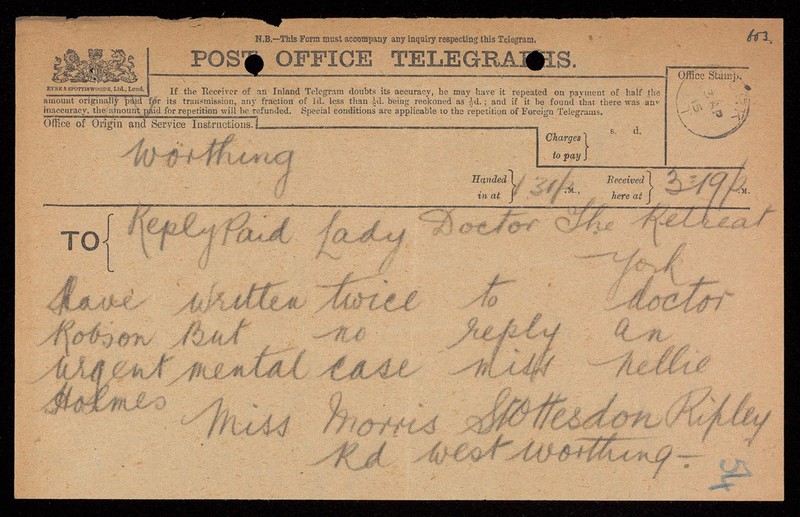 603.
N.B.—This Form must accompany any inquiry respecting this Telegram.
POST OFFICE TELEGRAPHS.
EYRE & SPOTTISWOODE, Ltd., Lond.
Office Stamp.
If the Receiver of an Inland Telegram doubts its accuracy, he may have it repeated on payment of half the
amount originally paid for its transmission, any fraction of 1d. less than ½d. being reckoned as ½d.; and if it be found that there was any
inaccuracy, the amount paid for repetition will be refunded. Special conditions are applicable to the repetition of Foreign Telegrams.
Office of Origin and Service Instructions.
Charges to pay s. d.
Worthing
Handed in at M., Received here at 3 19 M.
TO Reply Paid Lady Doctor The Retreat
York
Have written twice to doctor
Robson But no reply an
urgent mental case miss nellie
Holmes
Miss Morris Stottesdon Ripley
Rd west worthing -
54